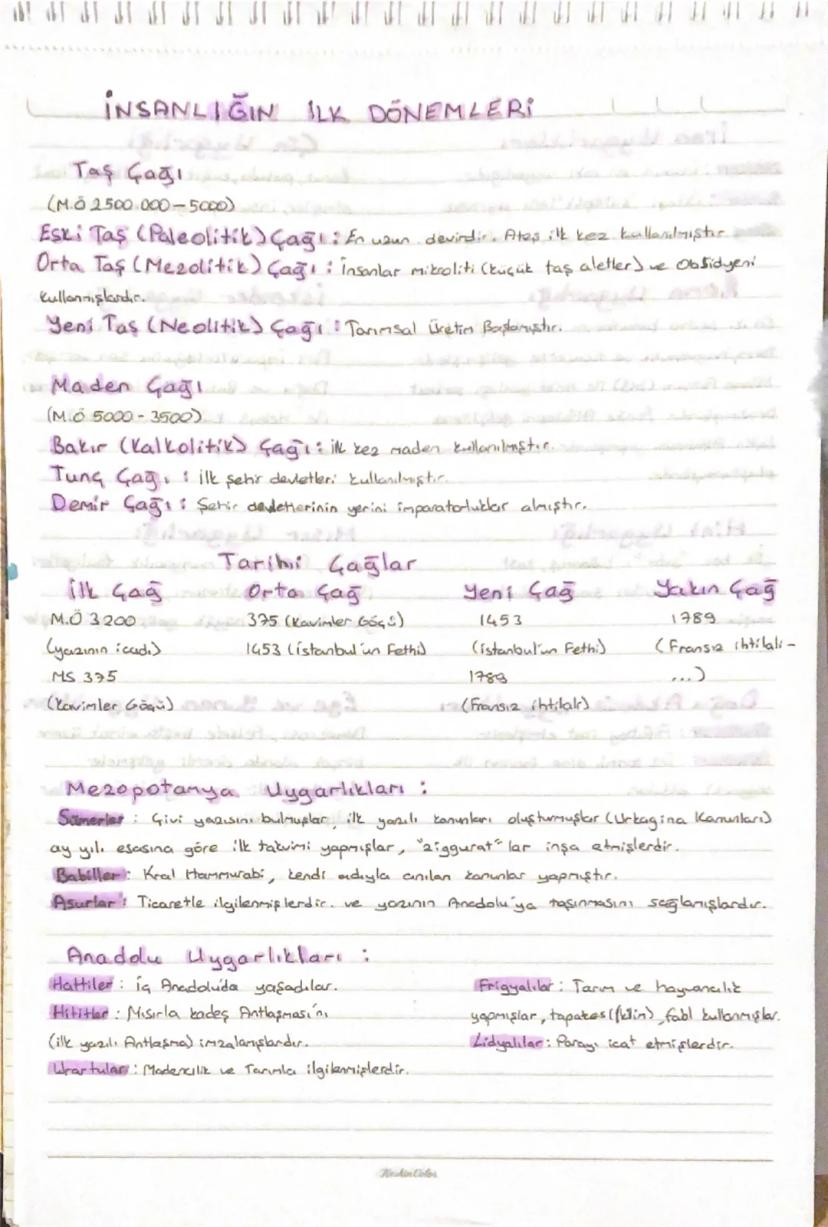 İNSANLIĞIN İLK DÖNEMLERİ
Taş Çağı
(M.Ö 2500.000-5000)
Eski Taş (Paleolitik) Çağı: En uzun devirdir. Ateş ilk kez kullanılmıştır
Orta Taş (Mezolitik) Çağı: İnsanlar mikroliti (küçük taş aletler) ve Obsidyeni
kullanmışlardır.
Yeni Taş (Neolitik) Çağı: Tarımsal Üretim Başlamıştır.
Maden Çağı
(M.Ö 5000-3500)
Bakır (Kalkolitik) Çağı: ilk kez maden kullanılmıştır.
Tunç Çağı: ilk şehir devletleri kullanılmıştır.
Demir Çağı: Şehir devletlerinin yerini imparatorluklar almıştır.
Tarihi Çağlar
İlk Çağ Orta Çağ Yeni Çağ Yakın Çağ
M.Ö 3200 375 (Kavimler Göçü) 1453 1789
(yazının icadı) 1453 (İstanbul'un Fethi) (İstanbul'un Fethi) (Fransız ihtilali-
MS 375 1789 ...)
(Kavimler Göçü) (Fransız ihtilali)
Mezopotamya Uygarlıkları:
Sümerler: Çivi yazısını bulmuşlar, ilk yazılı kanunları oluşturmuşlar (Urkagina Kanunları)
ay yılı esasına göre ilk takvimi yapmışlar, "ziggurat" lar inşa etmişlerdir.
Babiller: Kral Hammurabi, kendi adıyla anılan kanunlar yapmıştır.
Asurlar: Ticaretle ilgilenmişlerdir. ve yazının Anadolu'ya taşınmasını sağlamışlardır.
Anadolu Uygarlıkları:
Hattiler: İç Anadolu'da yaşadılar.
Hititler: Mısırla Kadeş Antlaşması'nı
(ilk yazılı Antlaşma) imzalamışlardır.
Urartular: Madencilik ve Tarımla ilgilenmişlerdir.
Frigyalılar: Tarım ve hayvancılık
yapmışlar, tapates (kilim), fabl kullanmışlar.
Lidyalılar: Parayı icat etmişlerdir.
KeskinColor